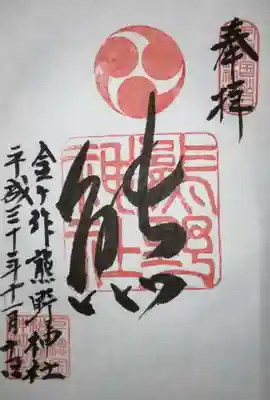 奉拝
熊野神社
熊
金ヶ作熊野神社
平成三十年十一月十